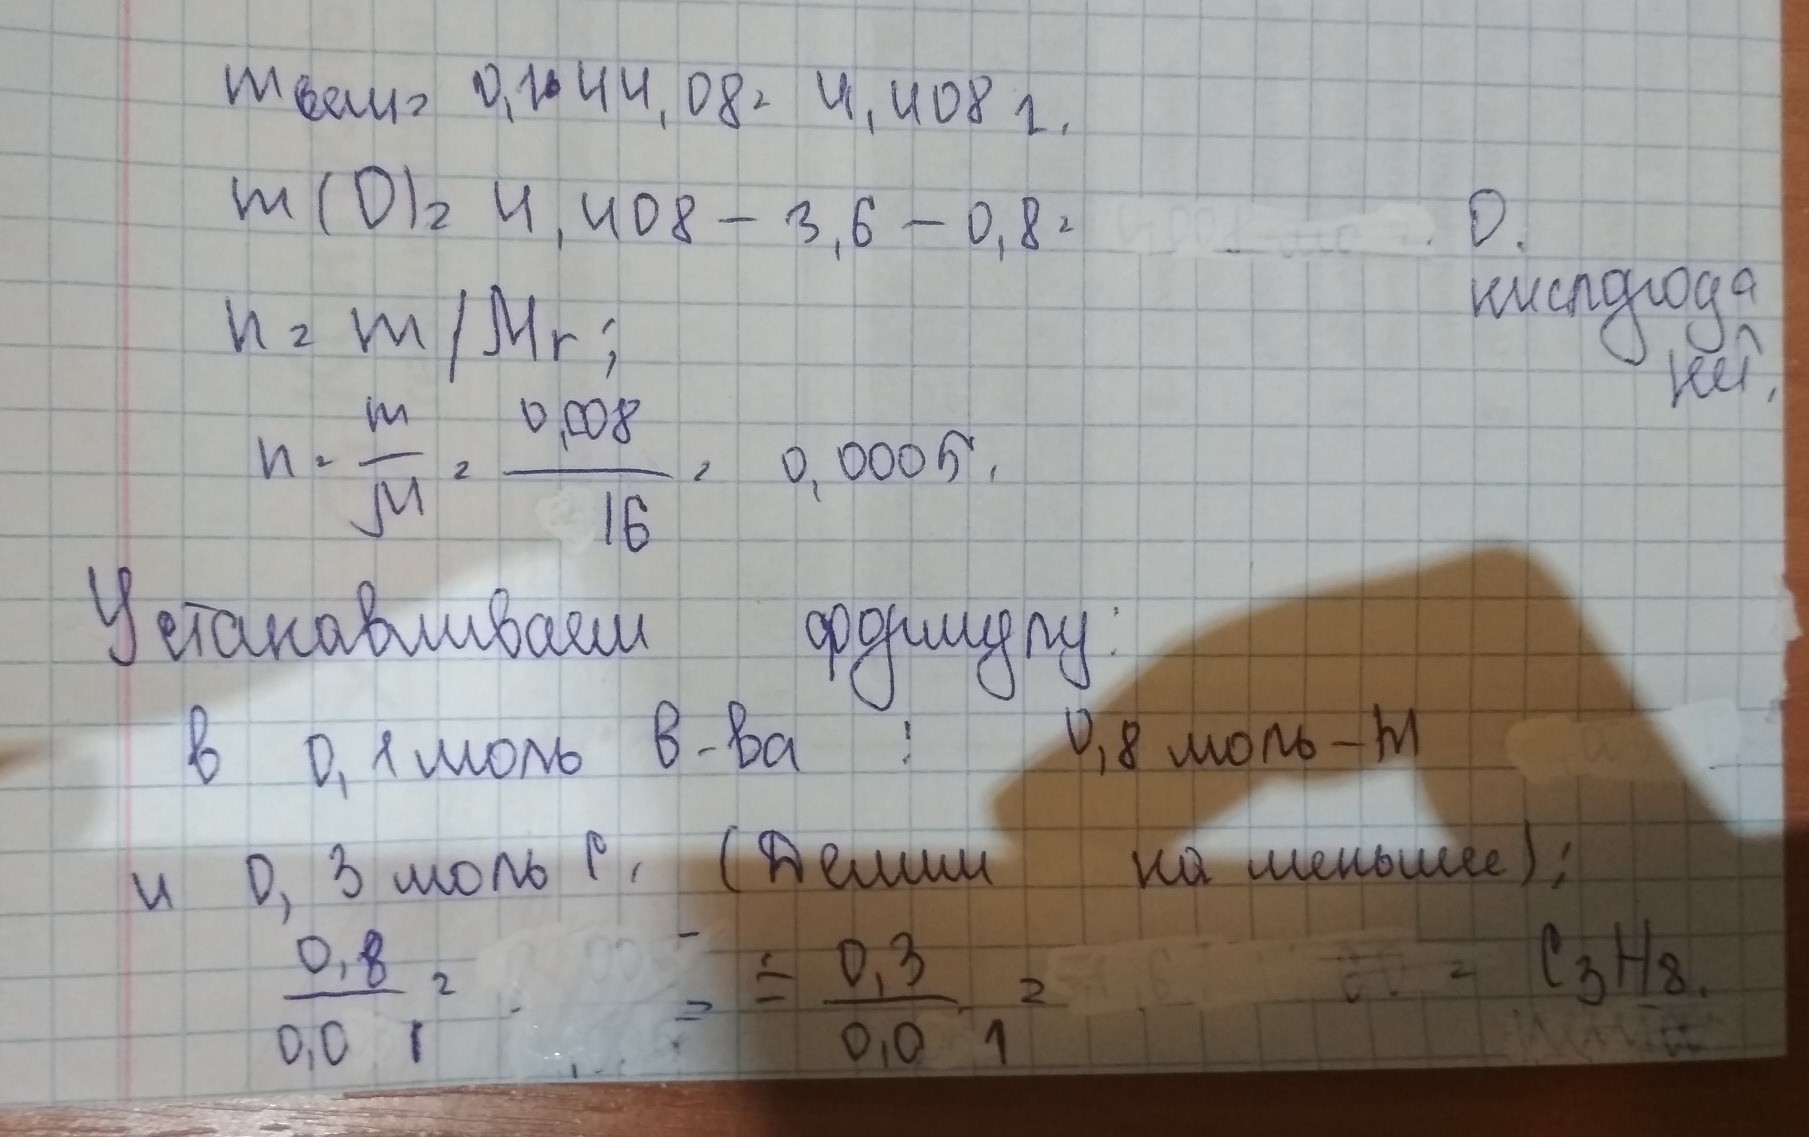 m вещ = 0,1 · 44,08 = 4,408 г.
m(O) = 4,408 - 3,6 - 0,8 = 0.
кислорода
нет.
n = m/Mr;
n = m/M = 0,008/16 = 0,0005.
Устанавливаем формулу:
в 0,1 моль в-ва : 0,8 моль - H
и 0,3 моль C. (Делим на меньшее);
0,8/0,0 1 = = ÷ = 0,3/0,0 1 = = C3H8.